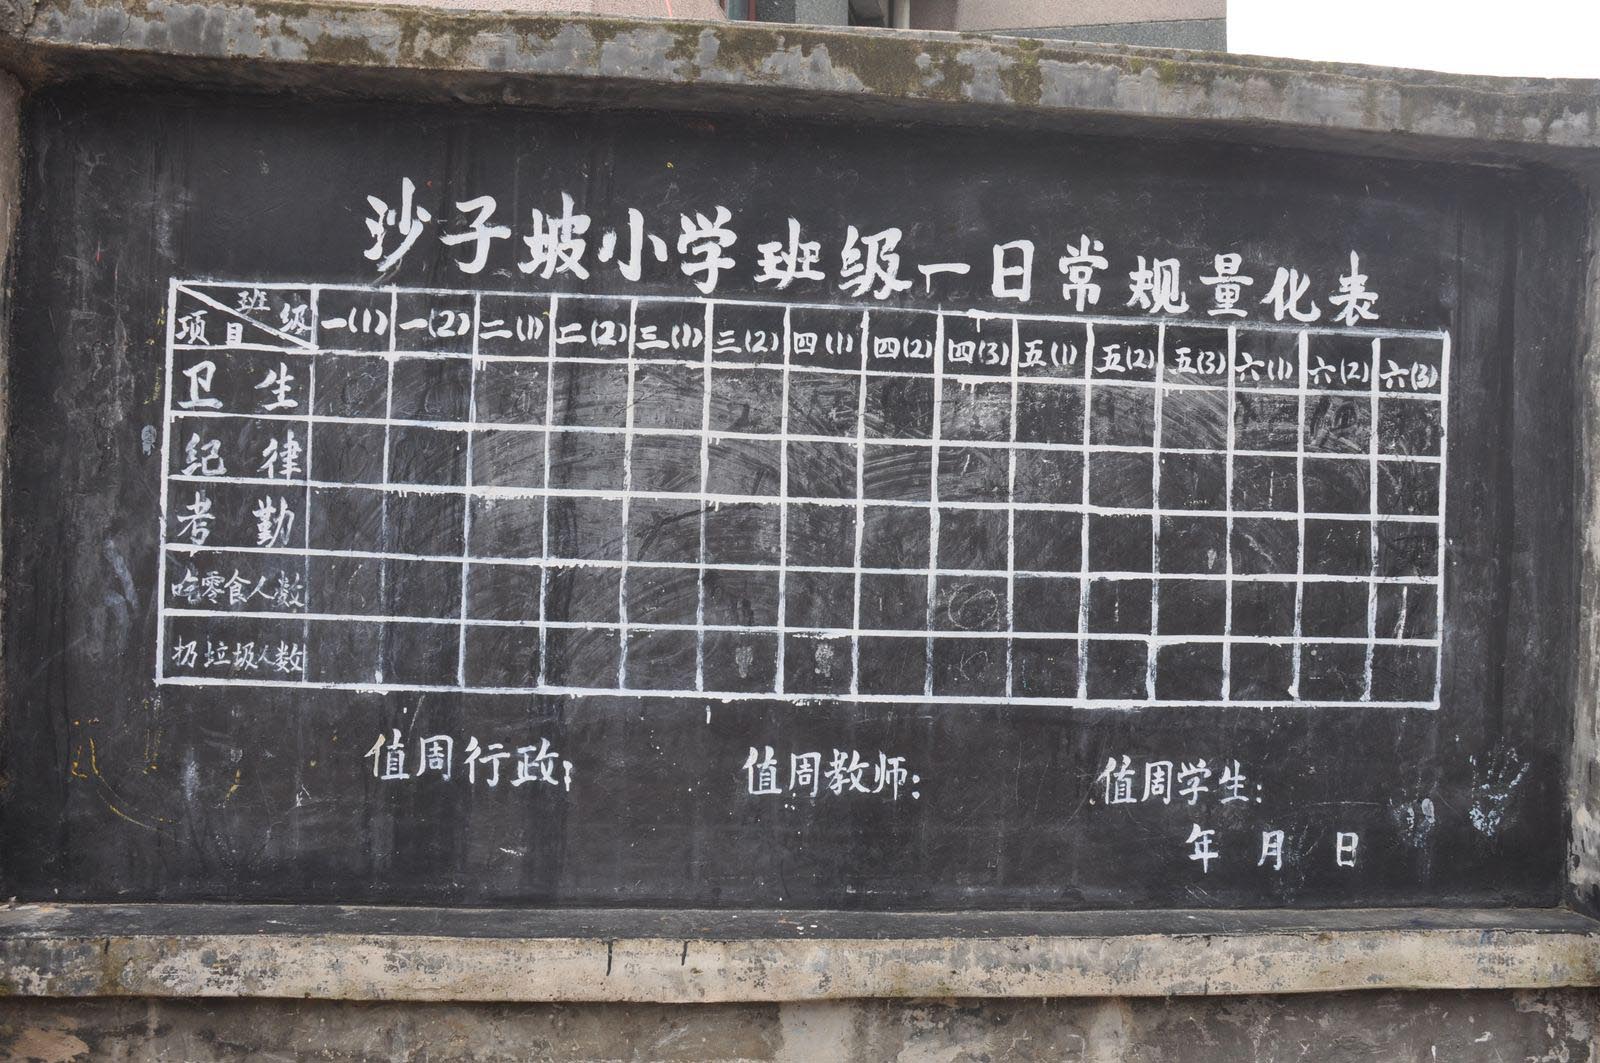 沙子坡小学班级一日常规量化表
班级 项目 一(1) 一(2) 二(1) 二(2) 三(1) 三(2) 四(1) 四(2) 四(3) 五(1) 五(2) 五(3) 六(1) 六(2) 六(3)
卫生
纪律
考勤
吃零食人数
扔垃圾人数
值周行政: 值周教师: 值周学生:
年 月 日